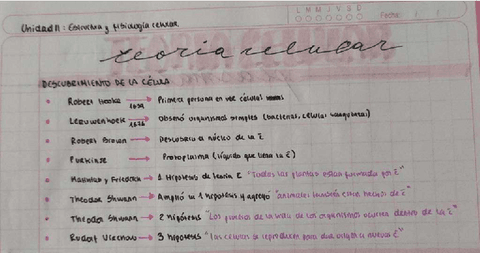 L M M J V S D
Fecha:
Unidad II: Estructura y fisiología celular.
teoria celular
DESCUBRIMIENTO DE LA CÉLULA
Robert Hooke → Primera persona en ver células
Leeuwenhoek → Observó organismos simples (bacterias, células sanguíneas)
Robert Brown → Descubrio el núcleo de la c̄
Purkinse → Protoplasma (líquido que llena la c̄)
Friedrich → 1 Hipotesis de teoría c̄ "Todas las plantas estan formadas por c̄"
Theodor Shwann → Amplió la 1 hipótesis y agregó "animales también estan hechos de c̄"
Theodor Shwann → 2 hipótesis "Los procesos de la vida de los organismos ocurren dentro de la c̄"
Rudolf → 3 hipotesis "las células se reproducen para dar origen a nuevas c̄"